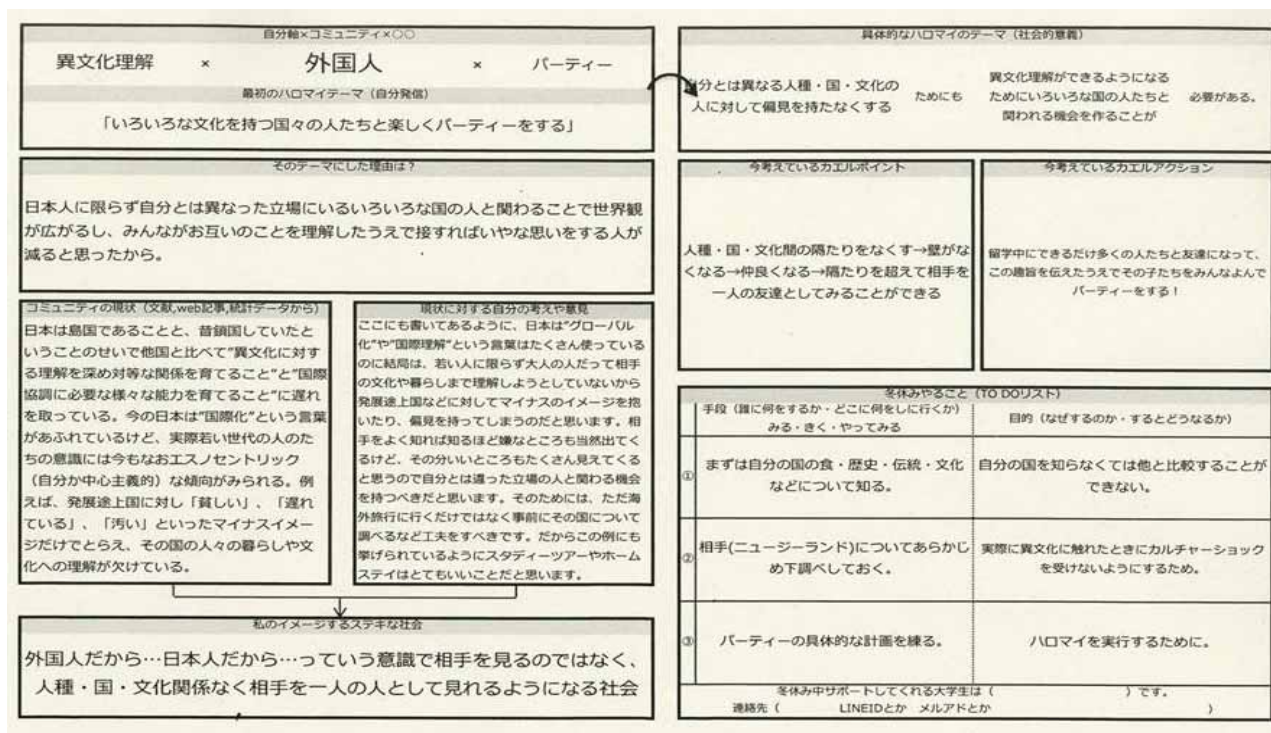 自分軸×コミュニティ×〇〇
異文化理解 × 外国人 × パーティー
最初のハロマイテーマ（自分発信）
「いろいろな文化を持つ国々の人たちと楽しくパーティーをする」
そのテーマにした理由は？
日本人に限らず自分とは異なった立場にいるいろいろな国の人と関わることで世界観
が広がるし、みんながお互いのことを理解したうえで接すればいやな思いをする人が
減ると思ったから。
コミュニティの現状（文献,web記事,統計データから）
日本は島国であることと、昔鎖国していたと
いうことのせいで他国と比べて"異文化に対す
る理解を深め対等な関係を育てること"と"国際
協調に必要な様々な能力を育てること"に遅れ
を取っている。今の日本は"国際化"という言葉
があふれているけど、実際若い世代の人のた
ちの意識には今もなおエスノセントリック
（自分か中心主義的）な傾向がみられる。例
えば、発展途上国に対し「貧しい」、「遅れ
ている」、「汚い」といったマイナスイメー
ジだけでとらえ、その国の人々の暮らしや文
化への理解が欠けている。
現状に対する自分の考えや意見
ここにも書いてあるように、日本は"グローバル
化"や"国際理解"という言葉はたくさん使っている
のに結局は、若い人に限らず大人の人だって相手
の文化や暮らしまで理解しようとしていないから
発展途上国などに対してマイナスのイメージを抱
いたり、偏見を持ってしまうのだと思います。相
手をよく知れば知るほど嫌なところも当然出てく
るけど、その分いいところもたくさん見えてくる
と思うので自分とは違った立場の人と関わる機会
を持つべきだと思います。そのためには、ただ海
外旅行に行くだけではなく事前にその国について
調べるなど工夫をすべきです。だからこの例にも
挙げられているようにスタディーツアーやホーム
ステイはとてもいいことだと思います。
私のイメージするステキな社会
外国人だから…日本人だから…っていう意識で相手を見るのではなく、
人種・国・文化関係なく相手を一人の人として見れるようになる社会
具体的なハロマイのテーマ（社会的意義）
自分とは異なる人種・国・文化の
人に対して偏見を持たなくする
ためにも
異文化理解ができるようになる
ためにいろいろな国の人たちと
関われる機会を作ることが
必要がある。
今考えているカエルポイント
人種・国・文化間の隔たりをなくす→壁がな
くなる→仲良くなる→隔たりを超えて相手を
一人の友達としてみることができる
今考えているカエルアクション
留学中にできるだけ多くの人たちと友達になって、
この趣旨を伝えたうえでその子たちをみんなよんで
パーティーをする！
冬休みやること（TO DOリスト）
手段（誰に何をするか・どこに何をしに行くか）
みる・きく・やってみる
目的（なぜするのか・するとどうなるか）
①
まずは自分の国の食・歴史・伝統・文化
などについて知る。
自分の国を知らなくては他と比較することが
できない。
②
相手(ニュージーランド)についてあらかじ
め下調べしておく。
実際に異文化に触れたときにカルチャーショック
を受けないようにするため。
③
パーティーの具体的な計画を練る。
ハロマイを実行するために。
冬休み中サポートしてくれる大学生は（ ）です。
連絡先（ LINEIDとか メルアドとか ）